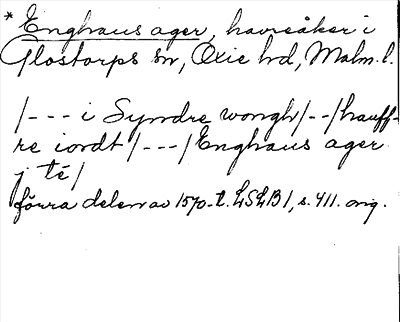 * Enghaus ager, havreåker i
Glostorps sn, Oxie hd, Malm. l.
/--- i Syndre wongh/--/hauff-
re iordt/---/Enghaus ager
j té/
förra delen av 1570-t. LSLB 1, s. 411. orig.